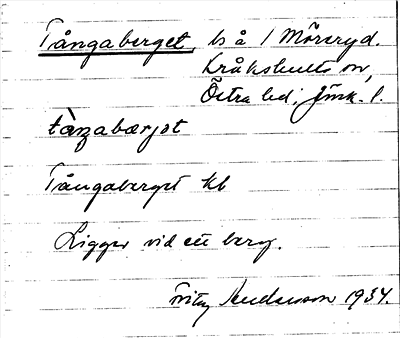 Tångaberget, ls å 1 Möreryd.
Kråkshults sn,
Östra hd; Jönk. l.
tàŋabærjət
Tångaberget kb
Ligger vid ett berg.
Fritz Andersson 1934.